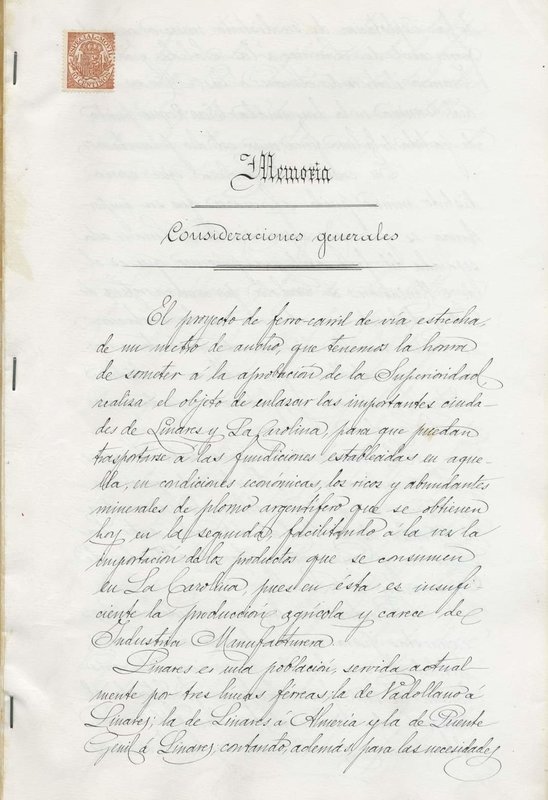 ESPECIAL MOVIL
10 CENTIMOS
Memoria
Consideraciones generales
El proyecto de ferro-carril de vía estrecha,
de un metro de ancho, que tenemos la honra
de someter á la aprobación de la Superioridad,
realiza el objeto de enlazar las importantes ciuda-
des de Linares y La Carolina, para que puedan
trasportarse á las fundiciones establecidas en aque-
lla, en condiciones económicas, los ricos y abundantes
minerales de plomo argentífero que se obtienen
hoy en la segunda, facilitando á la vez la
importación de los productos que se consumen
en La Carolina, pues en ésta es insufi-
ciente la producción agrícola y carece de
Industria Manufacturera.
Linares es una población, servida actual-
mente por tres lineas férreas; la de Vadollano á
Linares; la de Linares á Almeria y la de Puente
Genil á Linares, contando, además, para las necesidades